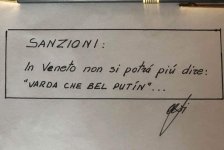 SANZIONI:
In Veneto non si potrá piú dire:
"VARDA CHE BEL PUTÍN"...